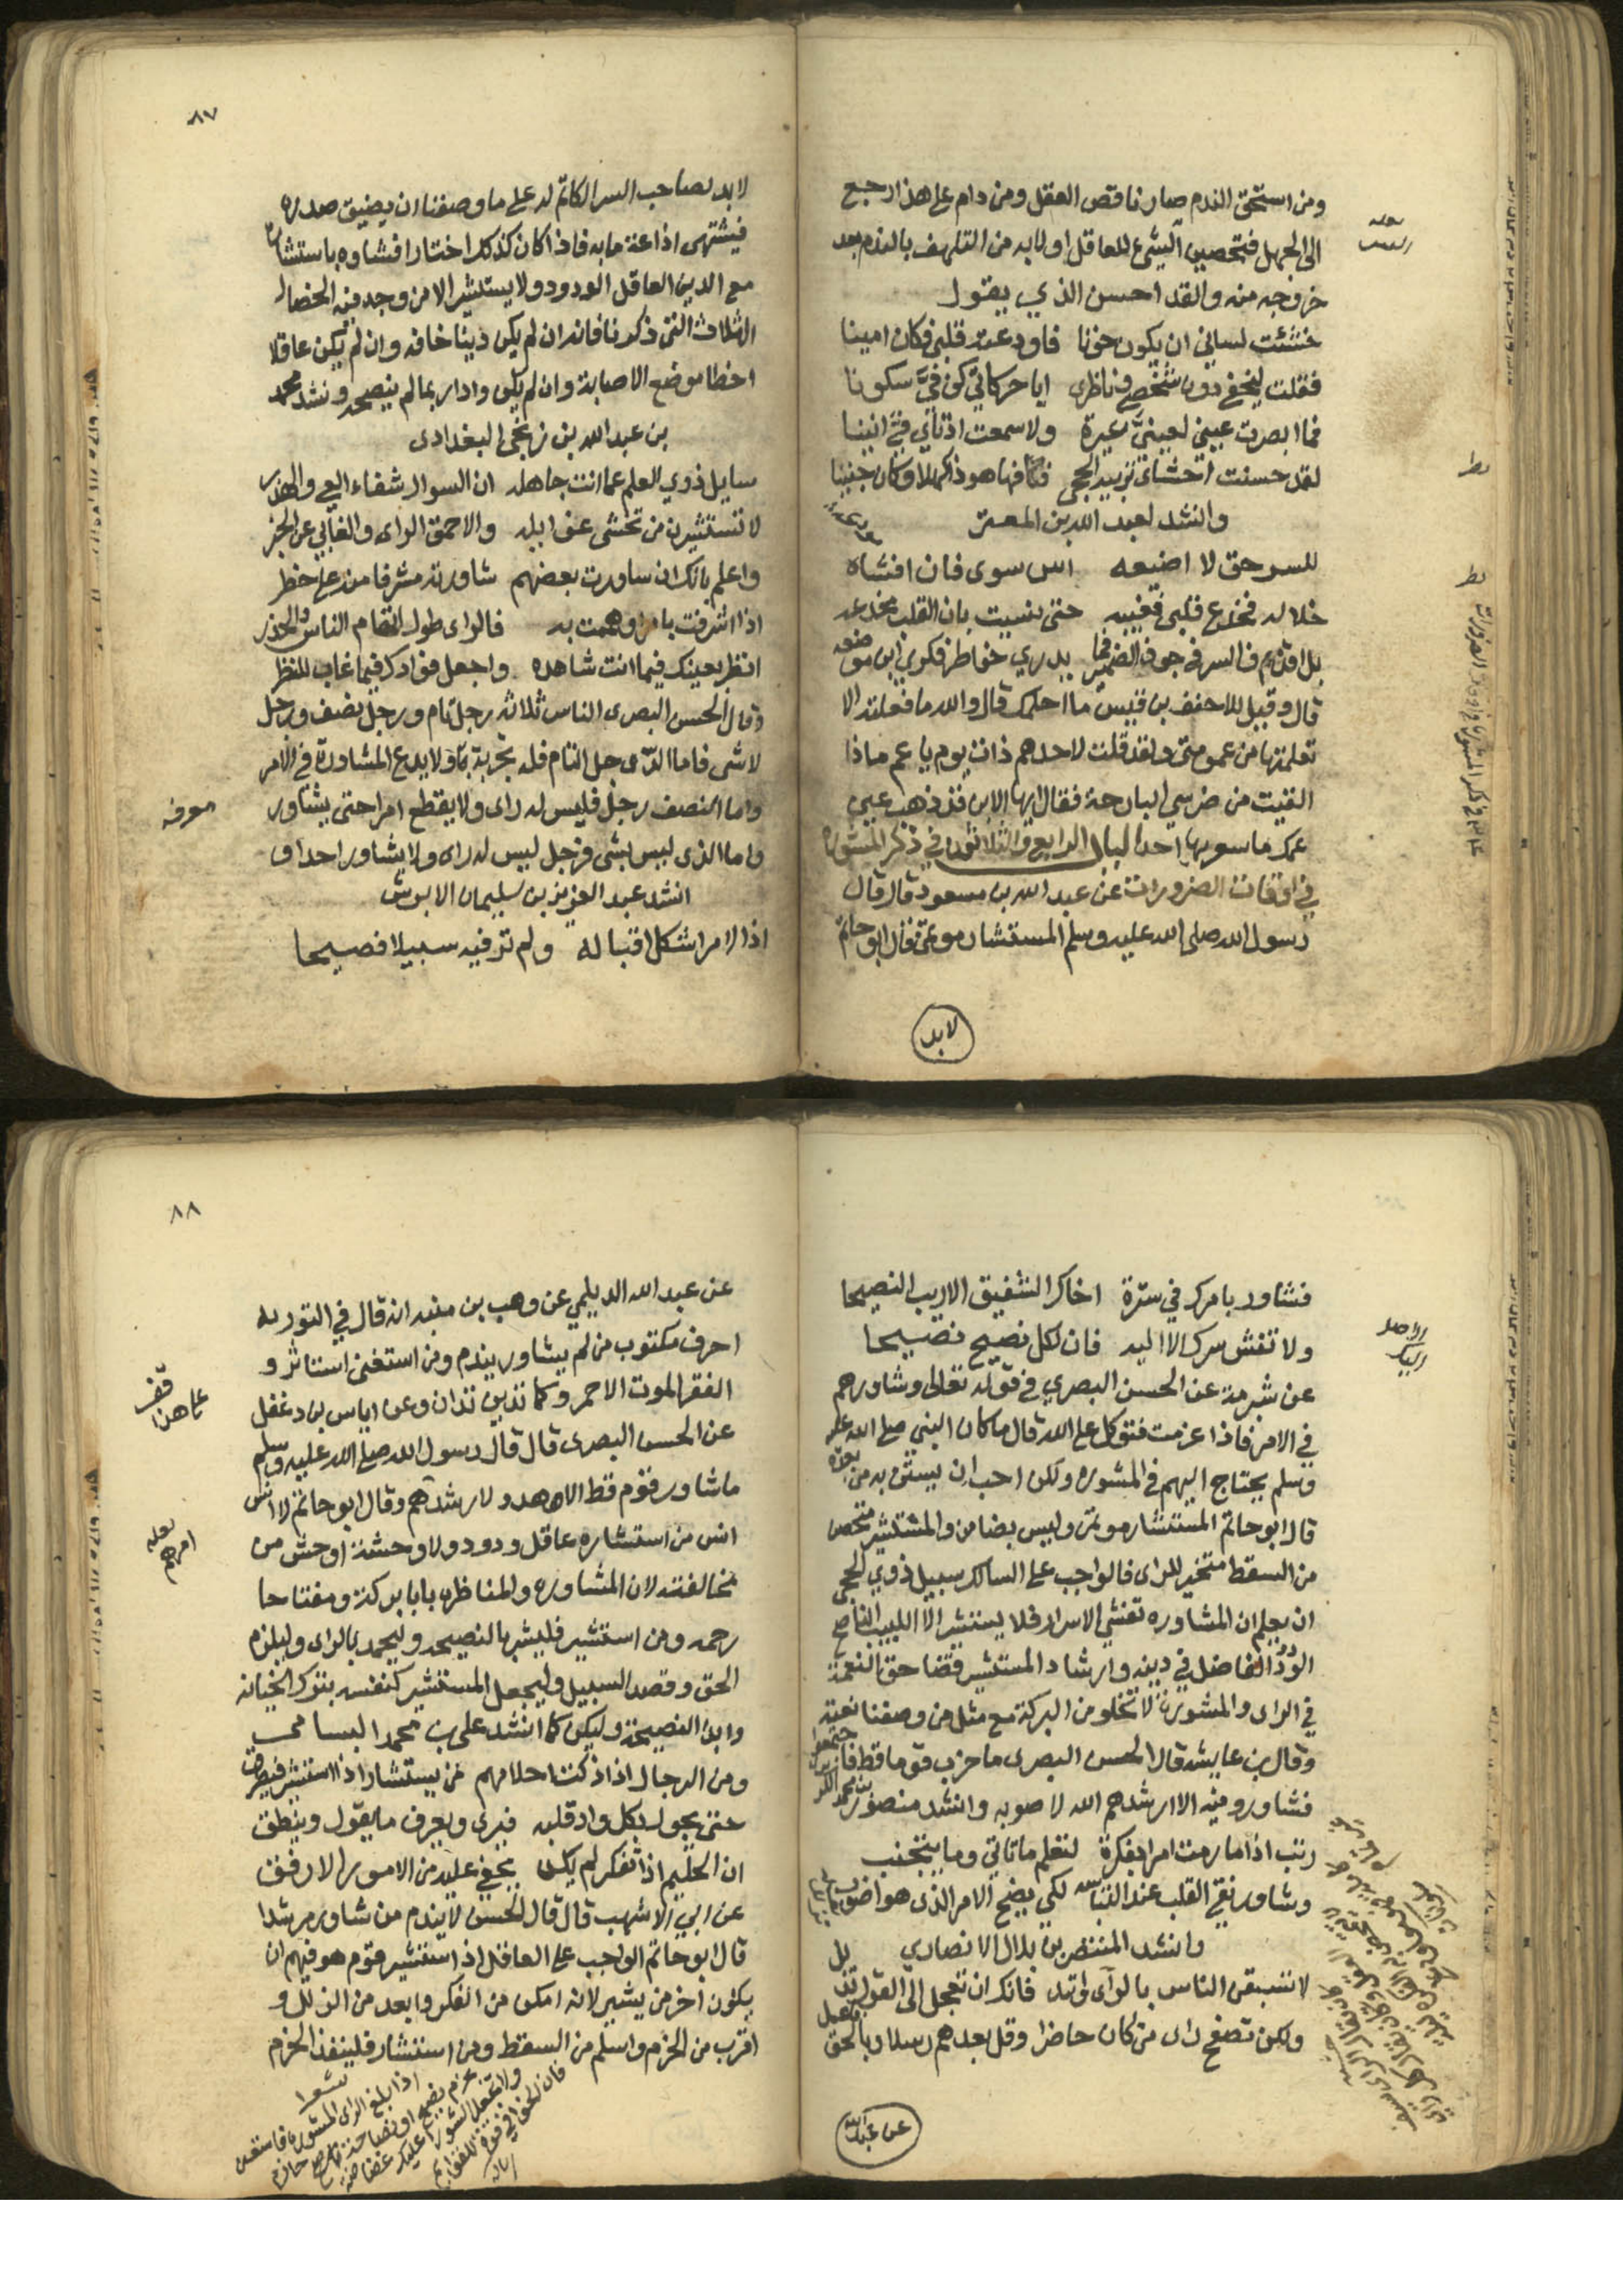 ومن استحق الندم صار ناقص العقل ومن دام على هذا رجع
الى الجهل فتحصين السر للعاقل اولى به من التلهف بالندم بعد
خروجه منه ولقد احسن الذي يقول
خشيت لساني ان يكون خونا فاودعته قلبي فكان امينا
فقلت ليخفى دون شخصي وناظري ايا حركاتي كن في سكونا
فما ابصرت عيني لعيني عبرة ولا سمعت اذناي في انينا
لقد حسنت احشاي تربيه الحجى فكافها هو ذا كهلا وكان جنينا
وانشد لعبد الله بن المعتز
للسر حق لا اضيعه سوى فان افشاه
خلا له فخدع قلبي فغيبه حتى نسيت بان القلب مخدعه
بل اقدم في السر في جوف الضمير فما يدري خواطر فكري اين موضعه
قال وقيل للاحنف بن قيس ما احلمك قال والله ما فعلته الا
تعلمتها من عمومتي ولقد قلت لاحدهم ذات يوم يا عم ماذا
القيت من ضرسي البارحة فقال ايها الابن قد ذهب عيني
عمك ما سوبها احد الباب الرابع والثلاثون في ذكر المشوره
في اوقات الضرورات عن عبد الله بن مسعود قال قال
رسول الله صلى الله عليه وسلم المستشار موتمن قال ابو حاتم
لابد
٨٧
لابد لصاحب السر الكاتم له على ما وصفنا ان يضيق صدره
فيشتهى اذاعة ما به فاذا كان كذلك اختار افشاوه باستشاره
مع الدين العاقل الودود ولا يستشير الا من وجد فيه الخصال
الثلاث التى ذكرنا فانه ان لم يكن دينا خانه وان لم يكن عاقلا
اخطا موضع الاصابة وان لم يكن وادا ربما لم ينصحه ونشد محمد
بن عبد الله بن زنجي البغدادى
سايل ذوي العلم عما انت جاهله ان السوال شفاء العي والهذر
لا تستشيرن من تخشى غوايله والاحمق الراى والغابي عن الخبر
واعلم بانك ان ساورت بعضهم شاورته مشرفا منه على خطر
اذا اشرفت بامر او هممت به فالراى طول اتقام الناس والحذر
انظر بعينك فيما انت شاهده واجعل فوادك فيما غاب للنظر
وقال الحسن البصرى الناس ثلاثة رجل تام ورجل نصف ورجل
لاشى فاما الرجل التام فله تجربة ولا يدع المشاورة في الامر
واما النصف رجل فليس له راى ولا يقطع امرا حتى يشاور
معرفه
واما الذى ليس بشى فرجل ليس له راى ولا يشاور احدا ف
انشد عبد العزيز بن سليمان الابرش
اذا الامر اشكل اقباله ولم تر فيه سبيلا فصيحا
فشاور بامرك في سترة اخاك الشفيق الاريب النصيحا
ولا تفش سرك الا اليه فان لكل نصيح نصيحا
عن شبرمة عن الحسن البصري في قوله تعالى وشاورهم
في الامر فاذا عزمت فتوكل على الله قال ما كان النبي صلى الله عليه
وسلم يحتاج اليهم في المشوره ولكن احب ان يستن به من بعده
قال ابو حاتم المستشار موتمن وليس بضامن والمستشير متحصن
من السقط متخير للراى فالواجب على السالك سبيل ذوي الحجى
ان يعلم ان المشاوره تفشي الاسرار فلا يستشير الا اللبيب الناصح
الودود الفاضل في دينه وارشاد المستشير قضا حق النعمة
في الراى والمشورة لا تخلو من البركة مع مثل من وصفنا نعته
وقال بن عايشه قال الحسن البصرى ما حزب قوما قط فاجتمعوا
فشاورو فيه الا ارشدهم الله لاصوبه وانشد منصور بن محمد
رتب اذا ما رمت امرا بفكرة لتعلم ما تاتي وما يتجنب
وشاور نقي القلب عند التباسه لكي يضح الامر الذى هو اصوب
وانشد المنتصر بن بلال الانصاري
لا تسبقن الناس بالرآى واتد فانك ان تعجل الى القول تزلل
ولكن تصفح راى من كان حاضرا وقل بعدهم رسلا وبالحق فاعمل
عن عبد الله
٨٨
عن عبد الله الديلمي عن وهب بن منبه انه قال في التوريه
احرف مكتوب من لم يشاور يندم ومن استغنى استاثر و
الفقر الموت الاحمر وكما تدين تدان وعن اياس بن دغفل
قف على هذا
عن الحسن البصرى قال قال رسول الله صلى الله عليه وسلم
ما شاور قوم قط الا هدو لارشدهم وقال ابو حاتم لا انس
لعله امرهم
انس من استشاره عاقل ودود ولا وحشة اوحش من
مخالفته لان المشاوره والمناظره بابا بركة ومفتاحا
رحمه ومن استشير فليشر بالنصيحه وليجهد بالراى وليلزم
الحق وقصد السبيل وليجعل المستشير كنفسه بترك الخيانه
وابدا النصيحة وليكن كما انشد على بن محمد البسامى
ومن الرجال اذا ذكت احلامهم من يستشار اذا استشير فيطرق
حتى يجول بكل واد قلبه فيرى ويعرف ما يقول وينطق
ان الحليم اذا تفكر لم يكن يخفى عليه من الامور الاوفق
عن ابي الاشهب قال قال الحسن لا يندم من شاور مرشدا
قال ابو حاتم الواجب على العاقل اذا استشير قوم هو فيهم ان
يكون اخر من يشير لانه امكن من الفكر وابعد من الزلل و
اقرب من الحزم واسلم من السقط ومن استشار فلينفذ الحزم
شعرا
اذا بلغ الراى المشوره فاستعن
بحزم نصيح او نصاحة حازم
ولا تجعل الشورا عليك غضاضة
فان الخوافي قوة للقوادم